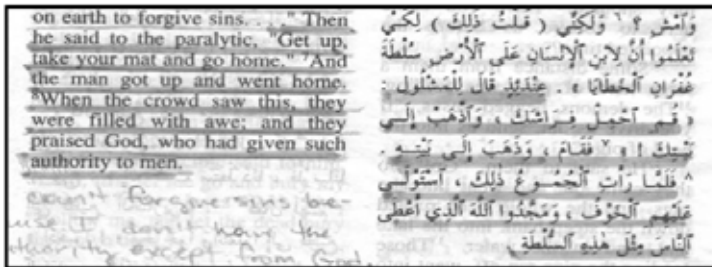 on earth to forgive sins. . . ." Then
he said to the paralytic, "Get up,
take your mat and go home." ⁷And
the man got up and went home.
⁸When the crowd saw this, they
were filled with awe; and they
praised God, who had given such
authority to men.
can't forgive sins be-
use I don't have the
thority except from God.
وَٱمْشِ ؟ ٦ وَلَكِنِّي ( قُلْتُ ذَلِكَ ) لِكَيْ
تَعْلَمُوا أَنَّ لِابْنِ ٱلْإِنْسَانِ عَلَى ٱلْأَرْضِ سُلْطَةَ
غُفْرَانِ ٱلْخَطَايَا » . عِنْدَئِذٍ قَالَ لِلْمَشْلُولِ :
« قُمِ ٱحْمِلْ فِرَاشَكَ ، وَٱذْهَبْ إِلَى
بَيْتِكَ ! » ٧ فَقَامَ ، وَذَهَبَ إِلَى بَيْتِهِ .
٨ فَلَمَّا رَأَتِ ٱلْجُمُوعُ ذَلِكَ ، ٱسْتَوْلَى
عَلَيْهِمِ ٱلْخَوْفُ ، وَمَجَّدُوا ٱللهَ ٱلَّذِي أَعْطَى
ٱلنَّاسَ مِثْلَ هَذِهِ ٱلسُّلْطَةِ .